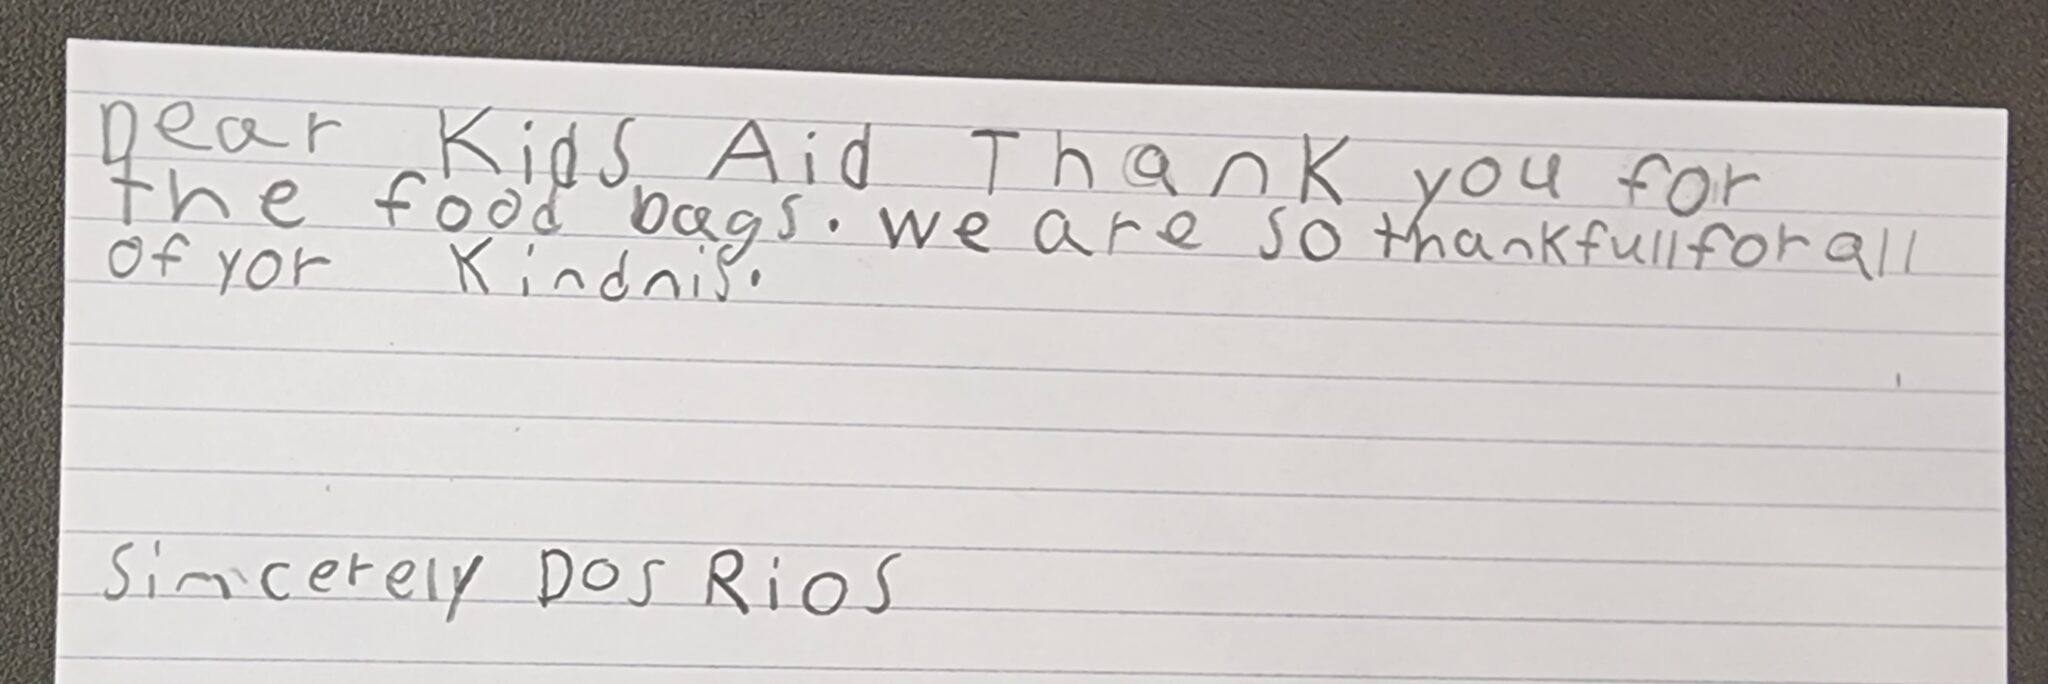 Dear Kids Aid Thank you for
the food bags. we are so thankfull for all
of yor Kindnis.
Sincerely Dos Rios